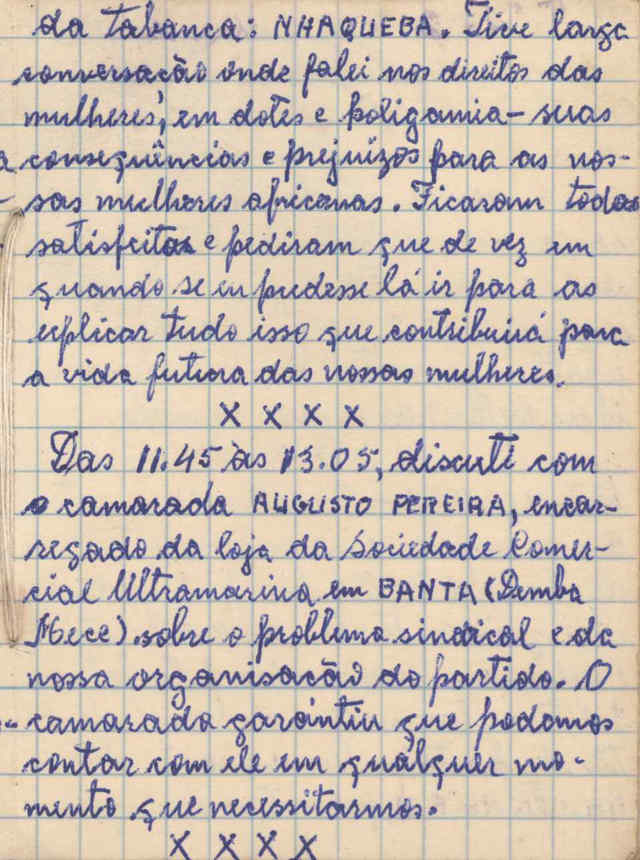 da tabanca: NHAQUEBA. Tive larga
conversação onde falei nos direitos das
mulheres, em dotes e poligamia - suas
consequências e prejuizos para as nos-
sas mulheres africanas. Ficaram todas
satisfeitas e pediram que de vez em
quando se eu pudesse lá ir para as
explicar tudo isso que contribuirá para
a vida futura das nossas mulheres.
X X X X
Das 11.45 às 13.05, discuti com
o camarada AUGUSTO PEREIRA, encar-
regado da loja da Sociedade Comer-
cial Ultramarina em BANTA (Demba
Mece) sobre o problema sindical e da
nossa organisação do partido. O
camarada garántiu que podemos
contar com ele em qualquer mo-
mento que necessitarmos.
X X X X